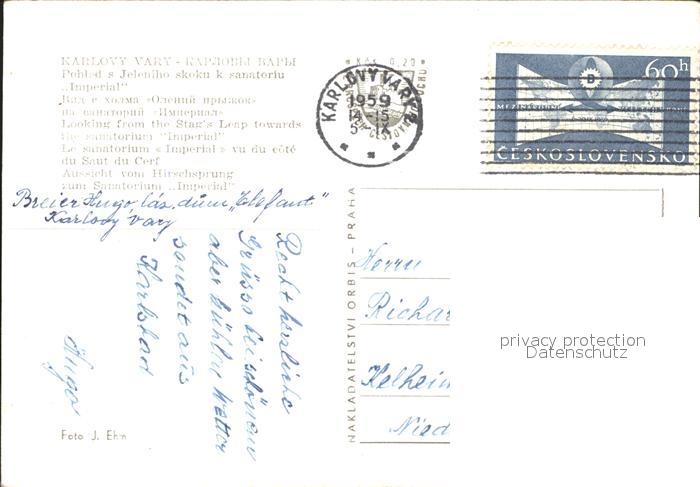 KARLOVY VARY - КАРЛОВЫ ВАРЫ
Pohled s Jeleního skoku k sanatoriu
„Imperial"
Вид с холма «Олений прыжок»
на санаторий «Империал»
Looking from the Stag's Leap towards
the sanatorium "Imperial"
Le sanatorium « Imperial » vu du côté
du Saut du Cerf
Aussicht vom Hirschsprung
zum Sanatorium „Imperial"
Breier Hugo, láz. dům „Elefant"
Karlovy vary
Recht herzliche
Grüsse bei schönem
aber kühlen Wetter
sendet aus
Karlsbad
Hugo
Foto J. Ehm
NAKLADATELSTVÍ ORBIS - PRAHA
Kčs 0,20
KARLOVY VARY
1959
14-15
5 IX
60h
ČESKOSLOVENSKO
Herrn
Richar
Kelheim
Nied
privacy protection
Datenschutz